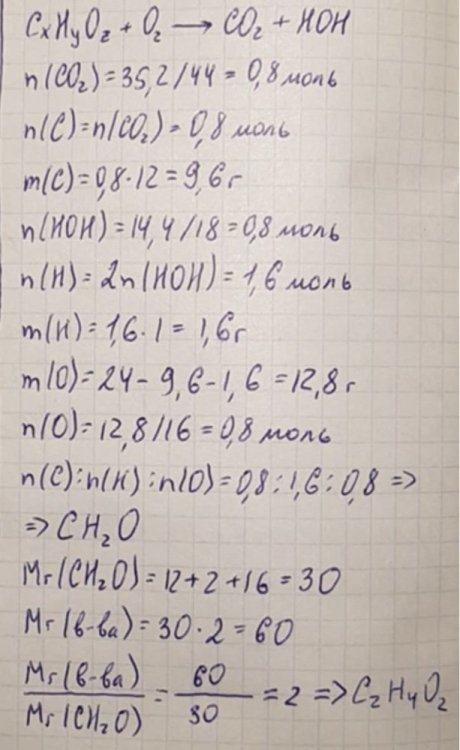 CxHyOz + O2 → CO2 + HOH
n(CO2) = 35,2/44 = 0,8 моль
n(C) = n(CO2) = 0,8 моль
m(C) = 0,8·12 = 9,6 г
n(HOH) = 14,4/18 = 0,8 моль
n(H) = 2n(HOH) = 1,6 моль
m(H) = 1,6·1 = 1,6 г
m(O) = 24 - 9,6 - 1,6 = 12,8 г
n(O) = 12,8/16 = 0,8 моль
n(C):n(H):n(O) = 0,8:1,6:0,8 =>
=> CH2O
Mr(CH2O) = 12+2+16 = 30
Mr(в-ва) = 30·2 = 60
Mr(в-ва)/Mr(CH2O) = 60/30 = 2 => C2H4O2